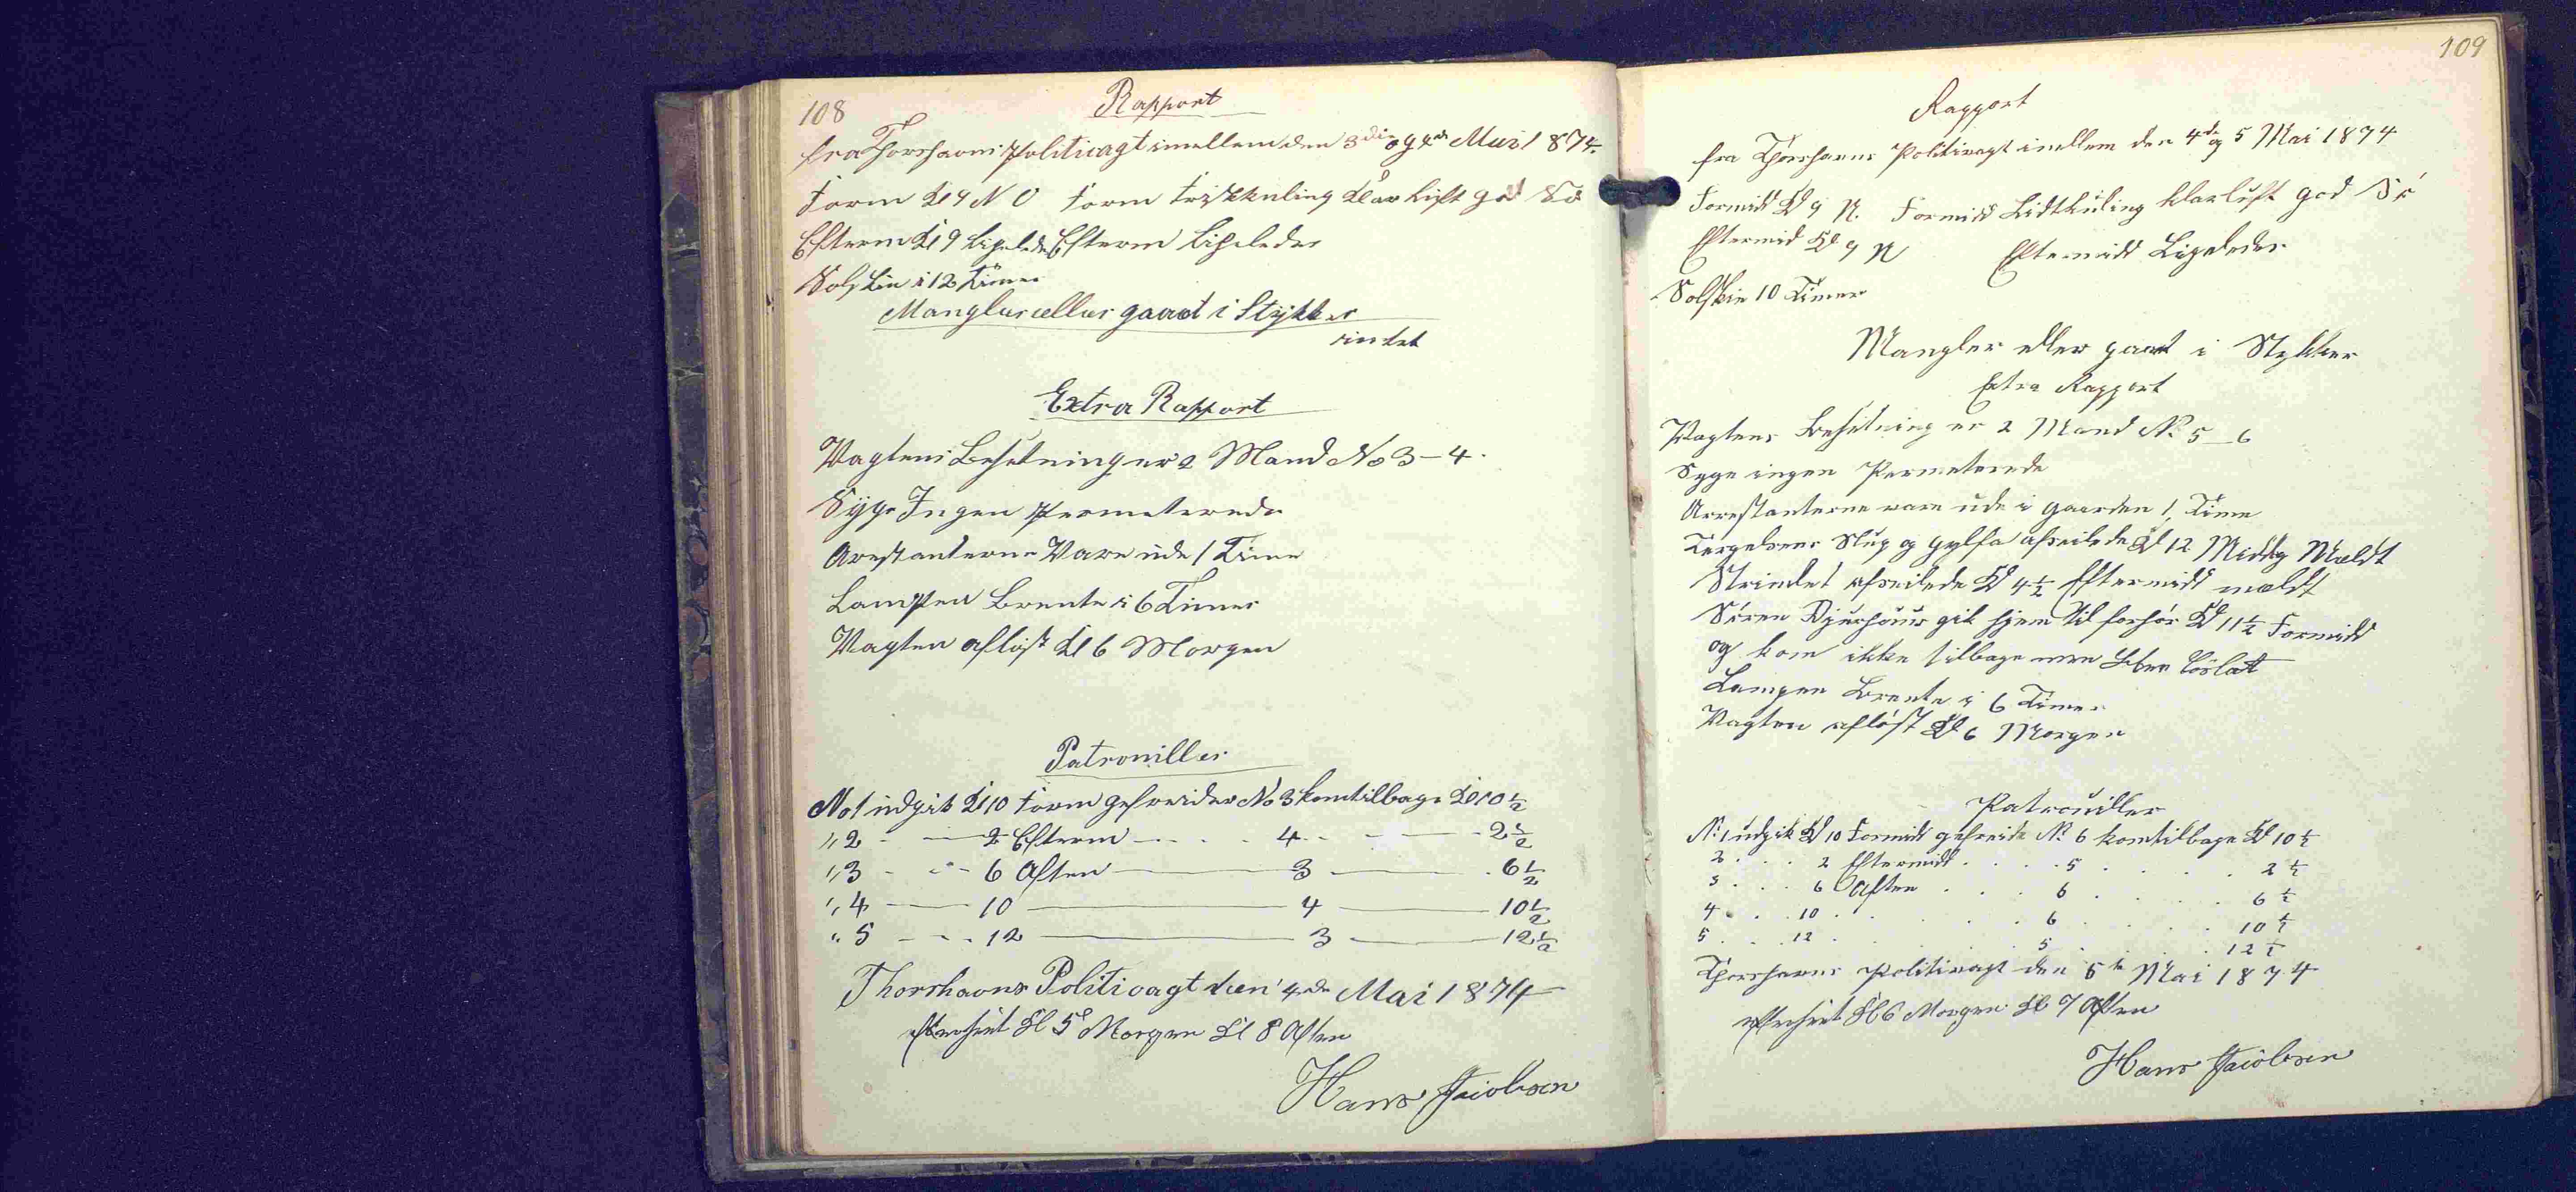 108
Rapport
fra Thorshavns Politivagt imellem den 3die og 4de Mai 1874.
Form Kl 9 N O Form Friskkuling Klar Luft god Sö
Efterm Kl 9 Ligeledes Efterm Ligeledes
Solskin i 12 Timer
Mangler eller gaaet i Stÿkker
intet
Extra Rapport
Vagtens Besetning er 2 Mand No 3-4.
Sÿge Ingen Permeterede
Arestanterne Vare ude 1 Time
Lampen Brente i 6 Timer
Vagten aflöst Kl 6 Morgen
Patrouiller
No 1 udgik Kl 10 Form gefreider No 3 kom tilbage Kl 10 1/2
" 2 - - 2 Efterm - - - - 4 - - - 2 1/2
" 3 - - - 6 Aften - 3 - 6 1/2
" 4 - 10 - 4 - 10 1/2
" 5 - - - 12 - 3 - 12 1/2
Thorshavns Politivagt den 4de Mai 1874
Kl 5 Morgen Kl 8 Aften
Hans Jacobsen
109
Rapport
fra Thorshavns Politivagt imellem den 4de og 5 Mai 1874
Formidd Kl 9 N. Formidd Lidtkuling klarluft god Sö
Eftermid Kl 9 N Eftermidd Ligeledes
Solskin 10 Timer
Mangler eller gaaet i Stykker
Extra Rapport
Vagtens Besetning er 2 Mand No 5-6
Syge ingen Permeterede
Arrestanterne vare ude i gaarden 1 Time
Slup og afseilede Kl 12 Middg Meldt
Strindet afseilede Kl 4 1/2 Eftermidd meldt
Sören Djurhuus gik hjem til forhör Kl 11 1/2 Formidd
og kom ikke tilbage men blev löslat
Lampen Brente i 6 Timer
Vagten aflöst Kl 6 Morgen
Patrouiller
No 1 udgik Kl 10 Formidd gefreide No 6 kom tilbage Kl 10 1/2
2 . . . 2 Eftermidd . . . . 5 . . . . . 2 1/2
3 . . . 6 Aften . . . 6 . . . . . 6 1/2
4 . . . 10 . . . . . 6 . . . . . 10 1/2
5 . . . 12 . . . . . 5 . . . . . 12 1/2
Thorshavns Politivagt den 5te Mai 1874
Kl 6 Morgen Kl 7 Aften
Hans Jacobsen